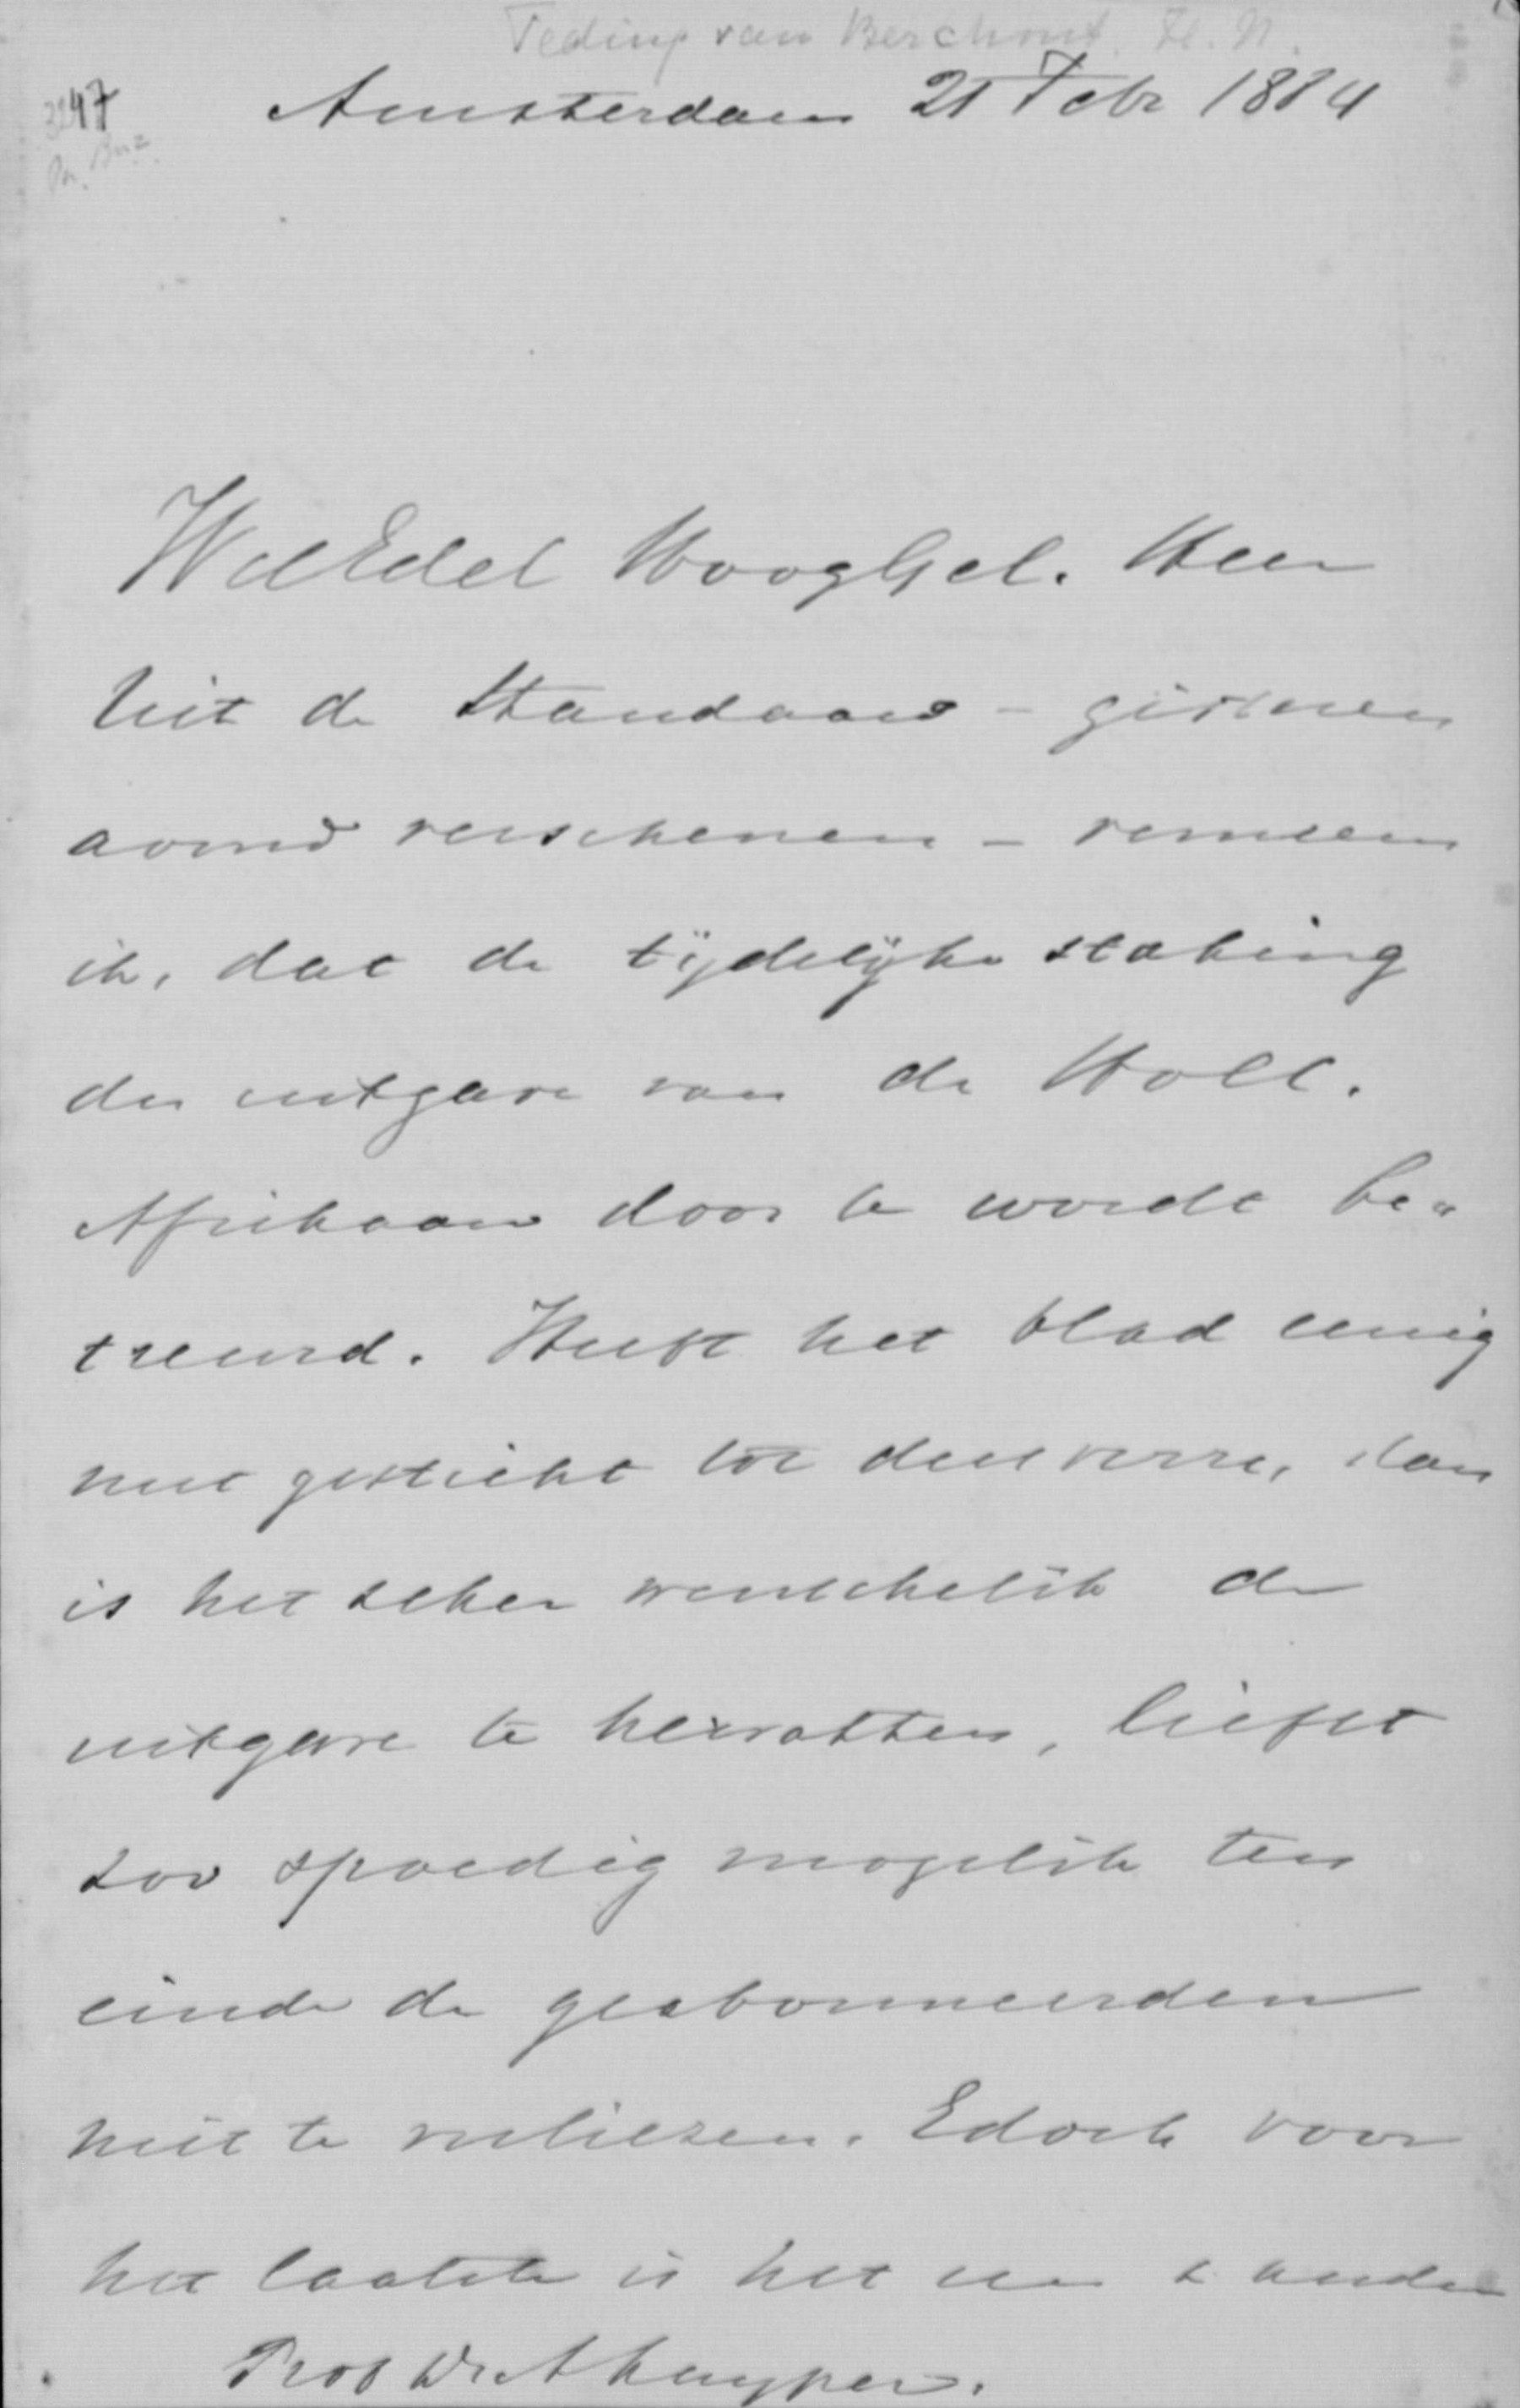 Teding van Berchout. H. N.
3247 Amsterdam 21 Febr 1884
Pr. Bnz.
WelEdel HoogGel. Heer
Uit de Standaard - gisteren
avond verschenen - verneem
ik, dat de tijdelijke staking
der uitgave van de Holl.
Afrikaan door U wordt be„
treurd. Heeft het blad eenig
nut gesticht tot dusverre, dan
is het zeker wenschelik de
uitgave te hervatten, liefst
zoo spoedig mogelik ten
einde de geabonneerden
niet te verliezen. Edoch voor
het laatste is het een &
Prof Dr A Kuyper.